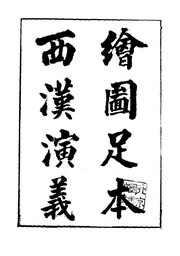 繪圖足本
西漢演義